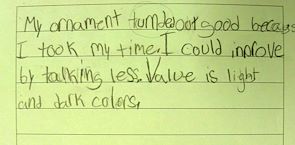 My ornament turnded out good becaus
I took my time. I could improve
by talking less. Value is light
and dark colors.